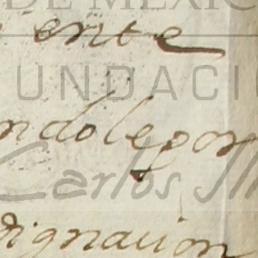 DE MEXICO
ente
FUNDACIÓ
ndole por
Carlos
dignacion